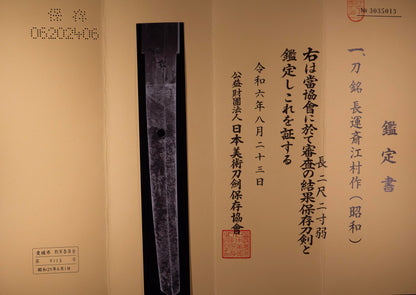 № 3035013
鑑定書
一、刀 銘 長運斎江村作(昭和)
長 二尺二寸弱
右は當協會に於て審査の結果保存刀剣と
鑑定しこれを証する
令和六年八月二十三日
公益財團法人日本美術刀剣保存協會
保存
06202406
愛媛県 教育委員会
昭和29年6月1日